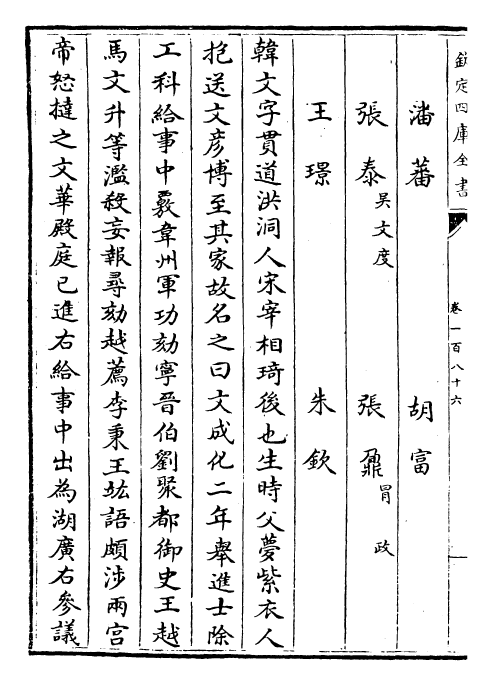 欽定四庫全書
卷一百八十六
潘蕃 胡富
張泰 吳文度 張鼐 冒政
王璟 朱欽
韓文字貫道洪洞人宋宰相琦後也生時父夢紫衣人
抱送文彥博至其家故名之曰文成化二年舉進士除
工科給事中覈韋州軍功劾寧晉伯劉聚都御史王越
馬文升等濫殺妄報尋劾越薦李秉王竑語頗涉兩宫
帝怒撻之文華殿庭已進右給事中出為湖廣右參議